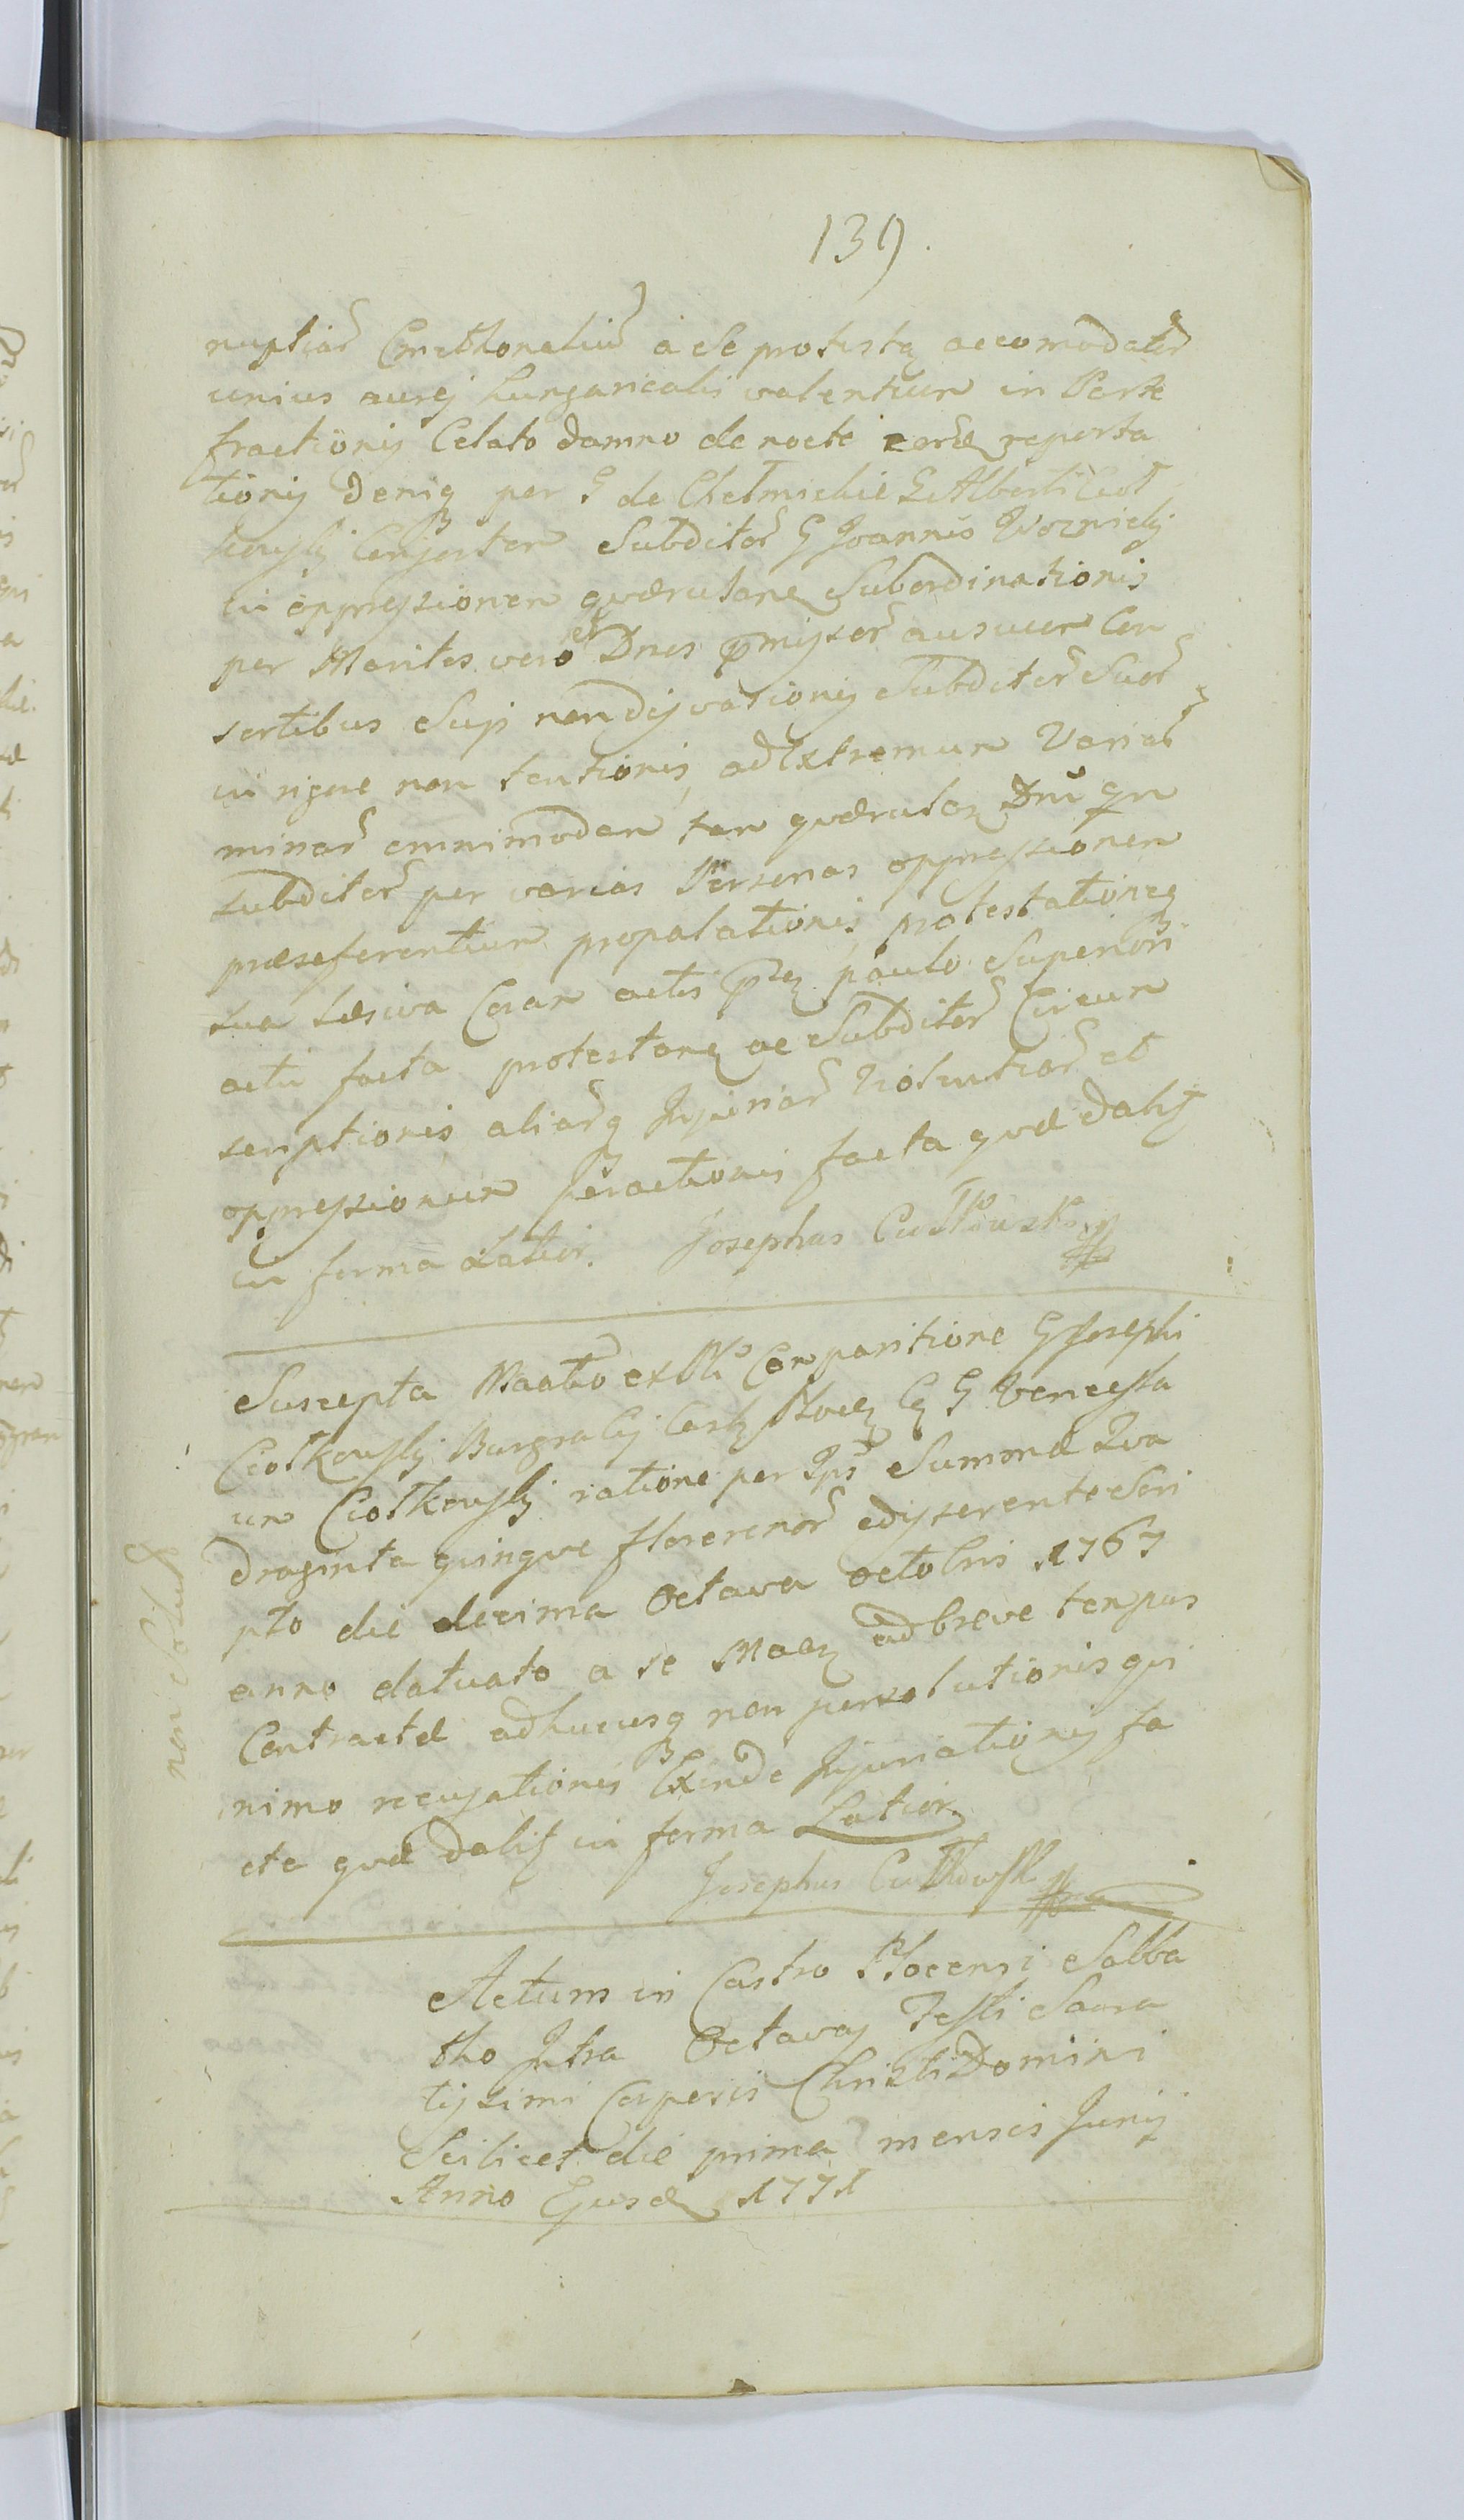 139.
nuptiar Cmethonaliu a se protestą accomodator
unius aurej hungaricalis valentium in Parte
fractionis Celato damno de nocte eord reporta
tionis deniq per G de Chelmickie G Alberti Ciot
kowski Consortem Subditos G Joannis Woznicki
in oppressionem qværulanę Subordinationis
per Maritos vero et Dnos pmissor ausuum Con
sortibus Suis non dissvasionis Subditor Suor
in rigore non tentionis, ad Extremum Variar
minar omnimodam tam qværulan Dni qm
subditor per varias Personas oppressionem
præseferentium propalationis, protestationeq
sua læsiva Coram actis pntbq paulo Superiori
actu facta protestanę ac Subditor Circum
scriptionis aliarq Injuriar Violentiar et
oppressionum peractionis facta qvæ dalis
in forma Latior. Josephus Ciotkowski
Suscepta Maatio ex Mo Comparitione G Josephi
Ciotkowski Burgrabij Cas Ploceń Cą G Vencesla
um Ciotkowski ratione per Ips Summæ Qva
draginta quinque florenor edisserente Scri
pto die decima Octava octobris 1767
anno datuato a se Maań ad breve tempus
Contractæ adhucusq non persolutionis qvi
nimo recusationis Exinde Injuriationis fa
cta qvæ dalis in forma Latior
Josephus Ciotkowski
non solut
Actum in Castro Plocensi Sabba
tho Intra Octavas Festi Sacra
tissimi Corporis Christi Domini
Scilicet die prima mensis Junij
Anno Ejusd 1771